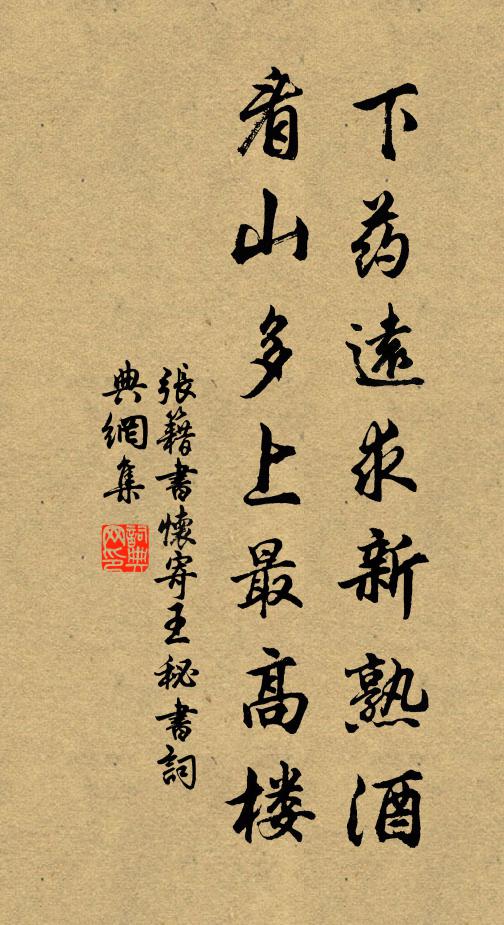 下药遠求新熟酒
看山多上最高楼
張籍書懷寄王秘書詞
典網集
詞典網印